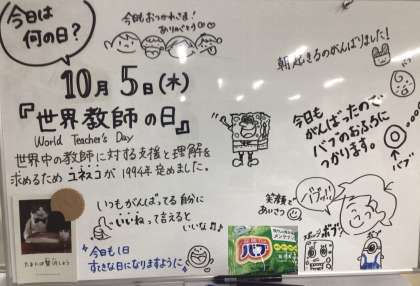 今日は
何の日?
今日もおつかれさま!
ありがとう
朝起きるのがんばりました!
10月5日(木)
『世界教師の日』
World Teacher's Day
世界中の教師に対する支援と理解を
求めるためユネスコが1994年定めました。
今日も
がんばったので
バブのおふろに
つかります。
バブ
いつもがんばってる自分に
いいねって言えると
いいな♪♪
笑顔で
あいさつ
バブィ!!
今日も1日
すてきな日になりますように
たまには贅沢しよう
バブ
メントン
スポンジボブ